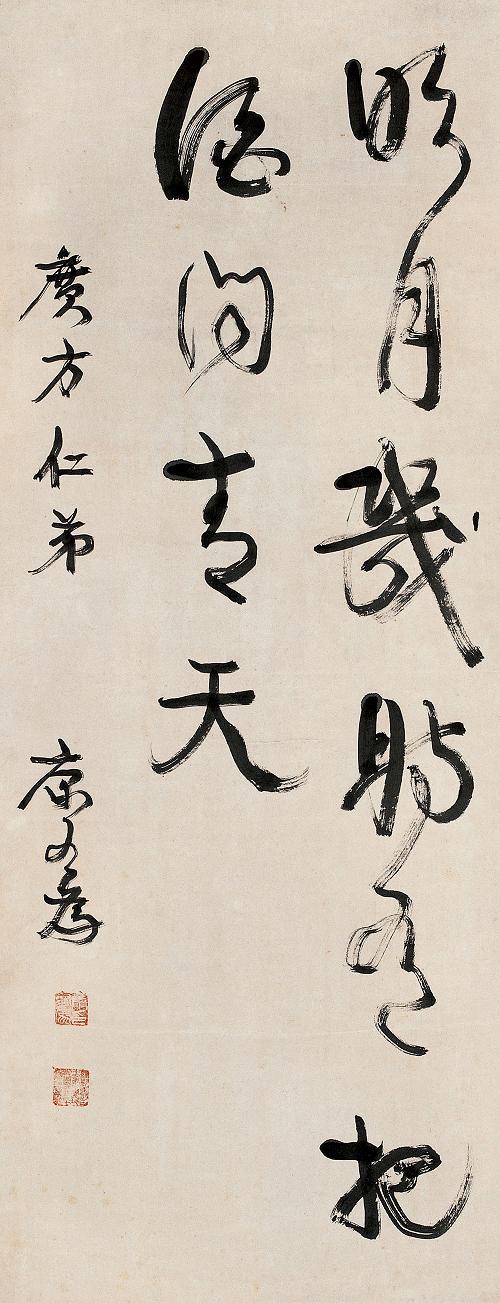 明月幾時有把
酒問青天
廣方仁弟
康有為